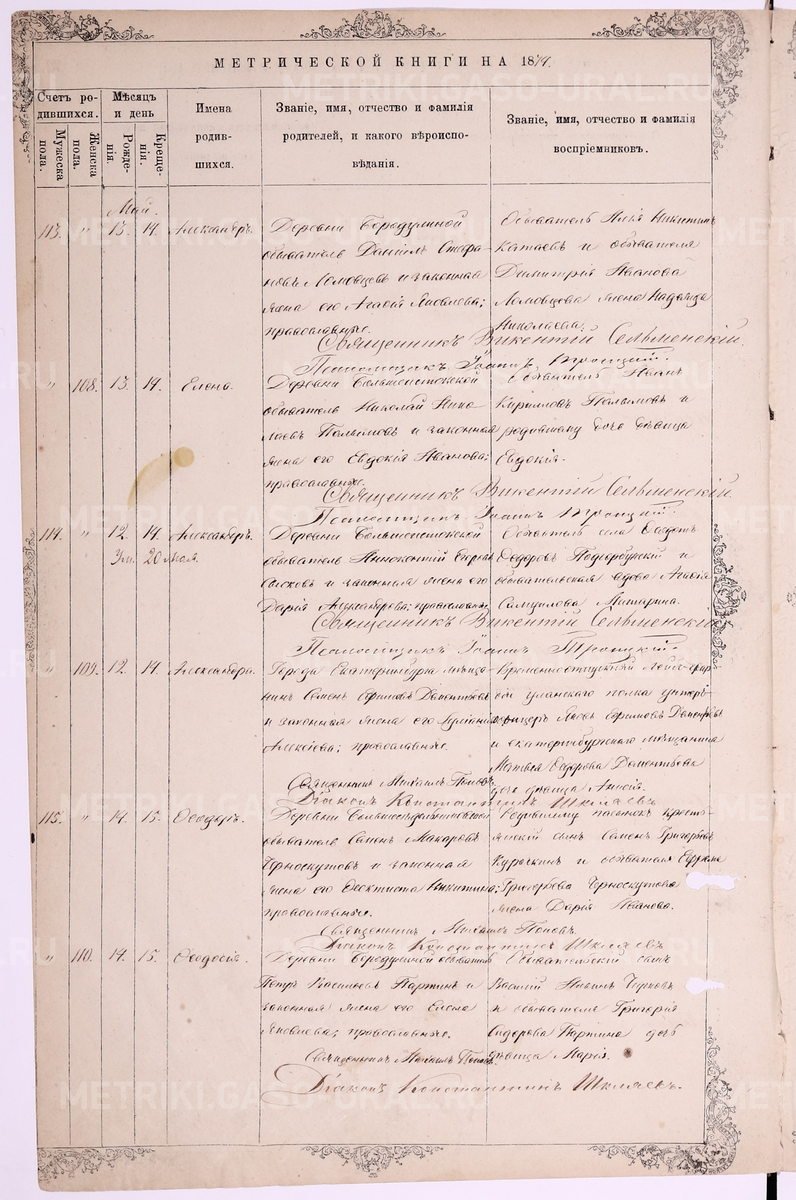 МЕТРИЧЕСКОЙ КНИГИ НА 1879.
Счетъ ро-
дившихся.
Мужеска пола.
Женска пола.
Мѣсяцъ
и день
Рожде-
нія.
Креще-
нія.
Имена
родив-
шихся.
Званіе, имя, отчество и фамилія
родителей, и какого вѣроиспо-
вѣданія.
Званіе, имя, отчество и фамилія
воспріемниковъ.
Май.
113. " 13. 14. Александръ.
Деревни Бородулиной
обыватель Даніилъ Стефа-
новъ Ломовцевъ и законная
жена его Агафія Яковлева;
православные.
Обыватель Илья Никитинъ
Катаевъ и обывателя
Димитрія Иванова
Ломовцова жена Надежда
Николаева.
Священникъ Викентій Сельменскій.
Псаломщикъ Іоаннъ Троицкій.
" 108. 13. 14. Елена.
Деревни
обыватель Николай Нико-
лаевъ и законная
жена его Евдокія Иванова;
православные.
Обыватель Иванъ
Кирилловъ и
родившему дочь дѣвица
Евдокія.
Священникъ Викентій Сельменскій.
Псаломщикъ Іоаннъ Троицкій.
114. " 12. 14. Александръ.
Ум. 20 мая.
Деревни
обыватель Иннокентій
и законная жена его
Дарія Александрова; православные.
Обыватель села Ѳедотъ
Ѳедоровъ и
обывательская вдова Агафія
Самуилова
Священникъ Викентій Сельменскій.
Псаломщикъ Іоаннъ Троицкій.
" 109. 12. 14. Александра.
Города Екатеринбурга мѣща-
нинъ Семенъ Ефимовъ Дементьевъ
и законная жена его
Алексіева; православные.
уланскаго полка унтеръ-
офицеръ Яковъ Ефимовъ Дементьевъ
и екатеринбургскаго мѣщанина
Матвѣя Ѳедорова Дементьева
дочь дѣвица
Священникъ Михаилъ Поповъ.
Діаконъ Константинъ Шкляевъ.
115. " 14. 15. Ѳеодоръ.
Деревни
обыватель Семенъ Макаровъ
Черноскутовъ и законная
жена его Ѳеоктиста Никитина;
православные.
Родившему пасынокъ кресть-
янскій сынъ Семенъ Григорьевъ
Курочкинъ и обывателя Ефрема
Григорьева Черноскутова
жена Дарія Иванова.
Священникъ Михаилъ Поповъ.
Діаконъ Константинъ Шкляевъ.
" 110. 14. 15. Ѳеодосія.
Деревни Бородулиной обыватель
Петръ Васильевъ Паршинъ и
законная жена его Елена
Яковлева; православные.
Обывательскій сынъ
Василій
и обывателя Григорія
Сидорова Паршина дочь
дѣвица Марія.
Священникъ Михаилъ Поповъ.
Діаконъ Константинъ Шкляевъ.